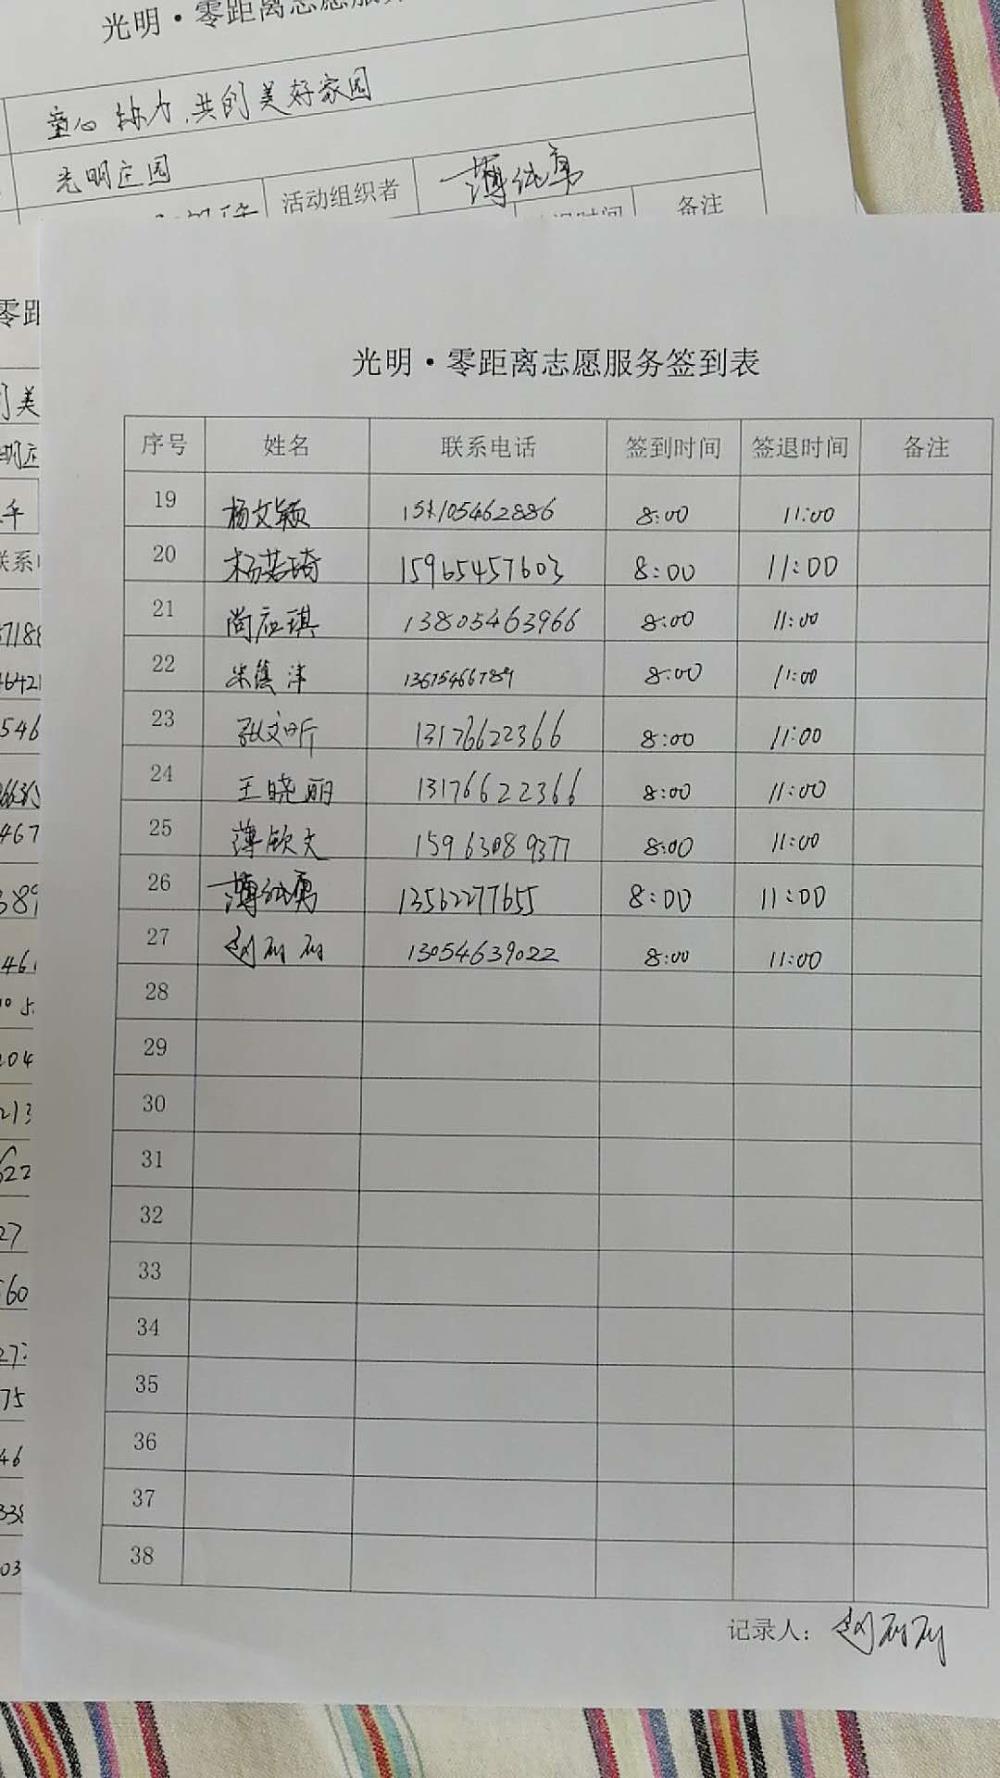 光明·零距离志愿服务
童心协力,共创美好家园
光明庄园
活动组织者 薄纯勇
备注
零距
创美
明庄
联系
光明·零距离志愿服务签到表
序号 姓名 联系电话 签到时间 签退时间 备注
19 杨文颖 8:00 11:00
20 杨若琦 15965457603 8:00 11:00
21 尚应琪 13805463966 8:00 11:00
22 13675466789 8:00 11:00
23 张文昕 13176622366 8:00 11:00
24 王晓丽 13176622366 8:00 11:00
25 薄钦文 15963089377 8:00 11:00
26 薄纯勇 13562277655 8:00 11:00
27 赵丽丽 13054639022 8:00 11:00
28
29
30
31
32
33
34
35
36
37
38
记录人: 赵丽丽